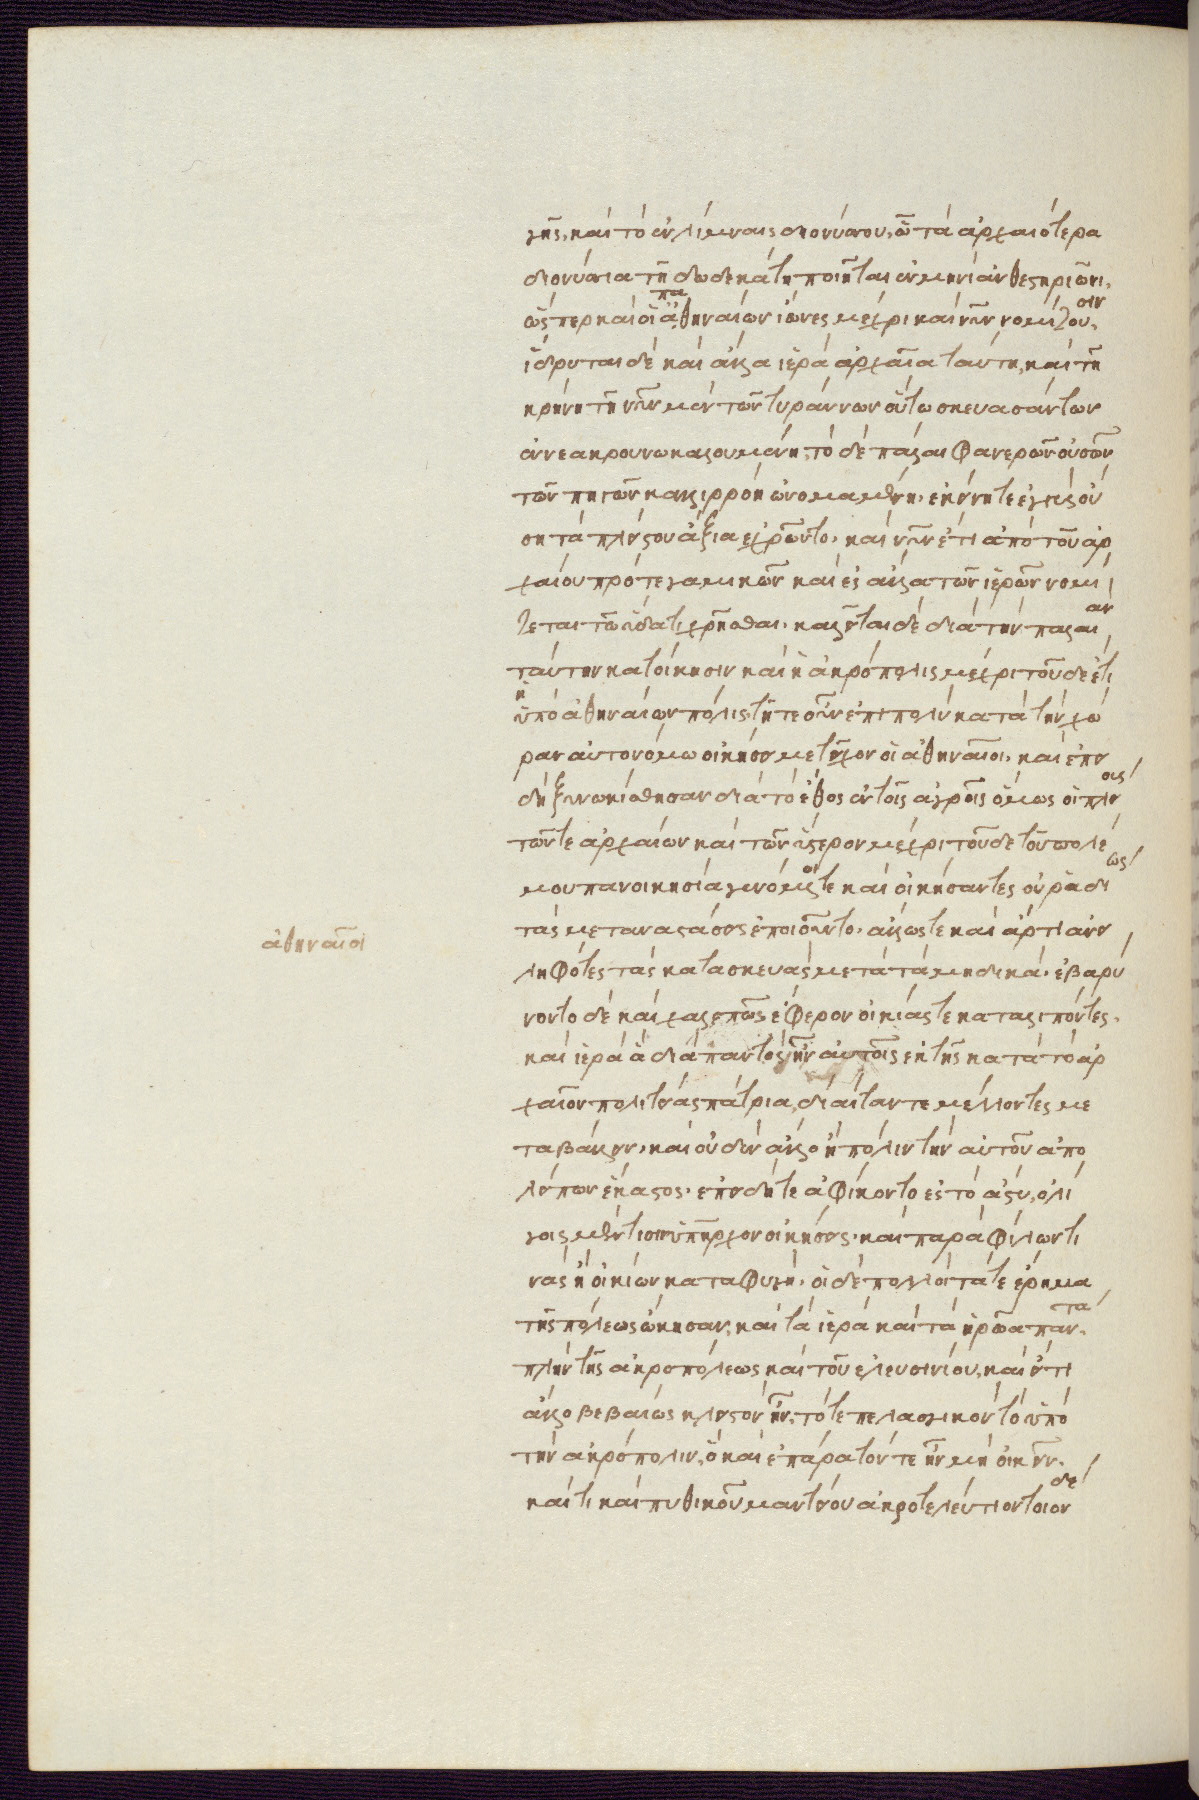 γῆς, καὶ τὸ ἐν λίμναις διονύσου, ὧ τὰ ἀρχαιότερα
διονύσια τῆ δωδεκάτη ποιεῖται ἐν μηνὶ ἀνθεστηριῶνι,
ὥσπερ καὶ οἱ ἀπ' ἀθηναίων ἴωνες μέχρι καὶ νῦν νομίζουσιν.
ἵδρυται δὲ καὶ ἄλλα ἱερὰ ἀρχαῖα ταύτη, καὶ τῆ
κρήνη τῆ νῦν μὲν τῶν τυράννων οὕτω σκευασάντων
ἐννεακρούνω καλουμένη, τὸ δὲ πάλαι φανερῶν οὐσῶν
τῶν πηγῶν καλλιρρόη ὠνομασμένη. ἐκείνη τε ἐγγὺς οὔ
ση τὰ πλείστου ἄξια ἐχρῶντο. καὶ νῦν ἔτι ἀπὸ τοῦ ἀρ
χαίου πρό τε γαμικῶν καὶ ἐς ἄλλα τῶν ἱερῶν νομί
ζεται τῶ ὕδατι χρῆσθαι. καλεῖται δὲ διὰ τὴν παλαιὰν
ταύτην κατοίκησιν καὶ ἡ ἀκρόπολις μέχρι τοῦδε ἔτι
ὑπὸ ἀθηναίων πόλις. τῆ τε οὖν ἐπιπολὺ κατὰ τὴν χώ
ραν αὐτονόμω οἰκήσει μετεῖχον οἱ ἀθηναῖοι. καὶ ἐπει
δὴ ξυνωκίσθησαν διὰ τὸ ἔθος ἐν τοῖς ἀγροῖς ὅμως οἱ πλείους
τῶν τε ἀρχαίων καὶ τῶν ὕστερον μέχρι τοῦδε τοῦ πολέ
μου πανοικησία γενόμενοί τε καὶ οἰκήσαντες οὐ ῥαδίως
τὰς μεταναστάσεις ἐποιοῦντο. ἄλλως τε καὶ ἄρτι ἀνει
ληφότες τὰς κατασκευὰς μετὰ τὰ μηδικά. ἐβαρύ
νοντο δὲ καὶ χαλεπῶς ἔφερον οἰκίας τε καταλιπόντες.
καὶ ἱερὰ ἃ διὰ παντὸς ἦν αὐτοῖς ἐκ τῆς κατὰ τὸ ἀρ
χαῖον πολιτείας πάτρια, δίαιτάν τε μέλλοντες με
ταβάλλειν, καὶ οὐδὲν ἄλλο ἢ πόλιν τὴν αὑτοῦ ἀπο
λείπων ἕκαστος. ἐπειδή τε ἀφίκοντο ἐς τὸ ἄστυ, ὀλί
γοις μέν τισιν ὑπῆρχον οἰκήσεις. καὶ παρὰ φίλων τι
νὰς ἢ οἰκείων καταφυγή. οἱ δὲ πολλοὶ τά τε ἔρημα
τῆς πόλεως ὤκησαν, καὶ τὰ ἱερὰ καὶ τὰ ἡρῶα πάντα.
πλὴν τῆς ἀκροπόλεως καὶ τοῦ ἐλευσινίου, καὶ εἴ τι
ἄλλο βεβαίως κλειστὸν ἦν. τό τε πελασγικὸν τὸ ὑπὸ
τὴν ἀκρόπολιν, ὃ καὶ ἐπάρατόν τε ἦν μὴ οἰκεῖν.
καί τι καὶ πυθικοῦ μαντείου ἀκροτελεύτιον τοιόνδε
ἀθηναῖοι